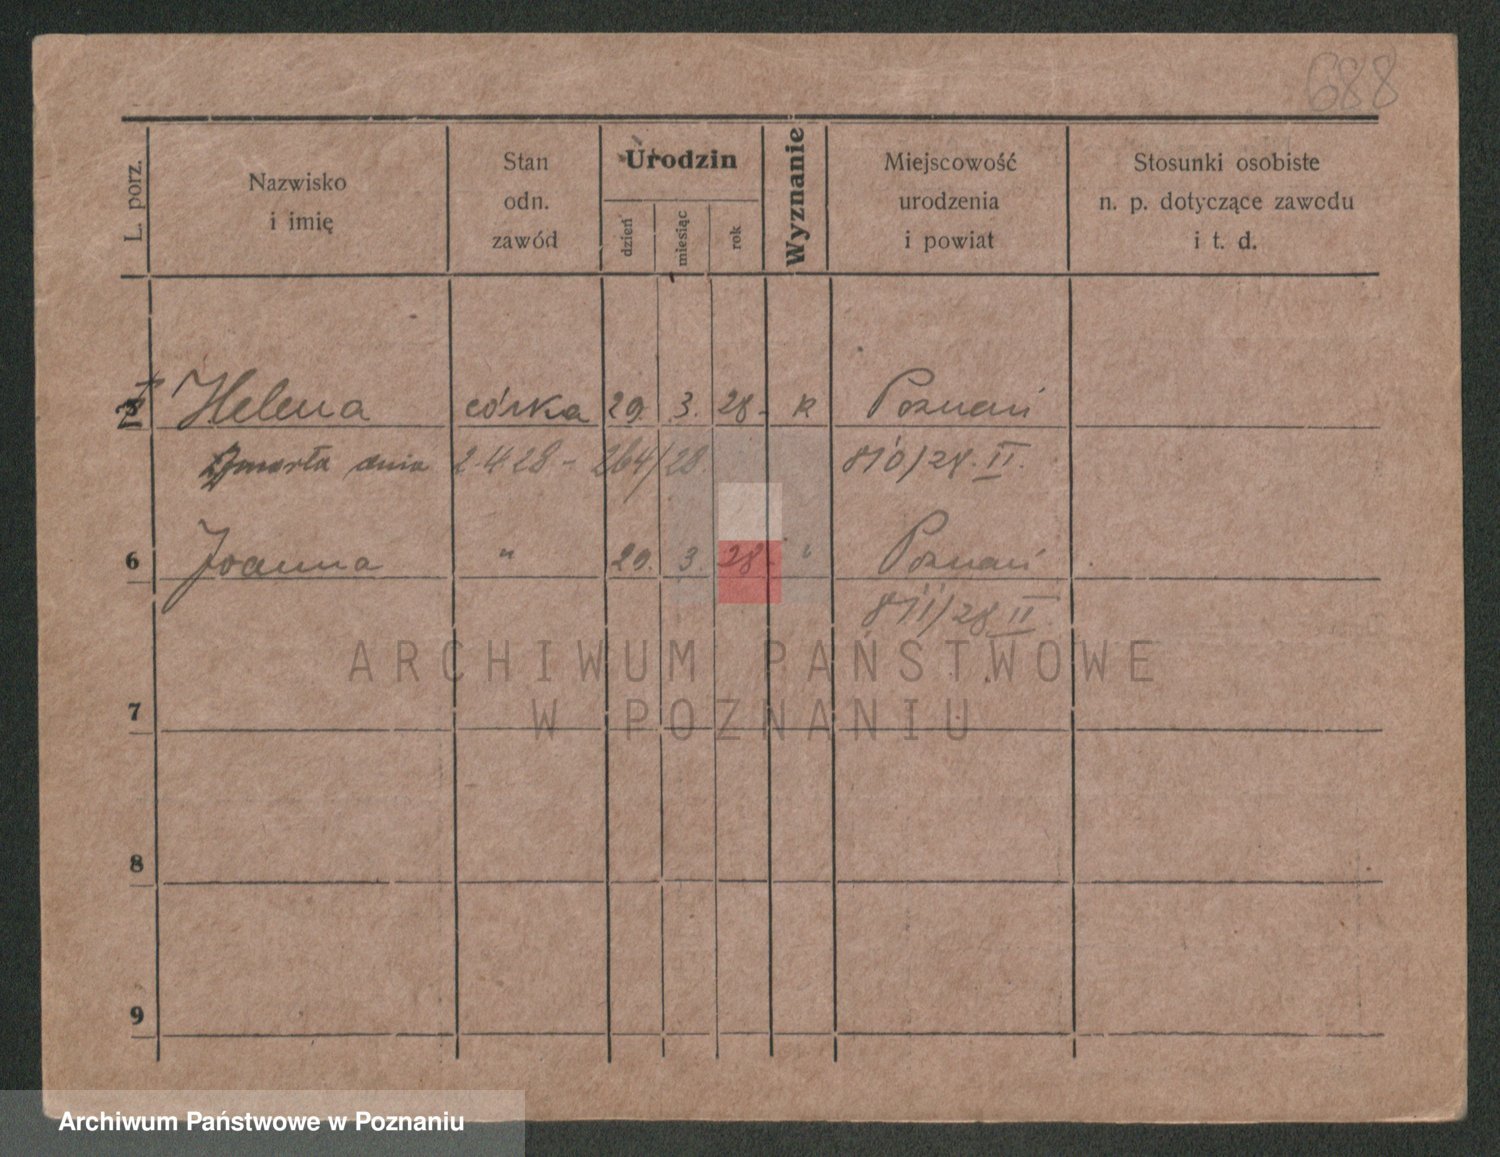 688
L. porz.
Nazwisko
i imię
Stan
odn.
zawód
Urodzin
dzień
miesiąc
rok
Wyznanie
Miejscowość
urodzenia
i powiat
Stosunki osobiste
n. p. dotyczące zawodu
i t. d.
Helena córka 29. 3. 28. k Poznań
Zmarła dnia 2.4.28 - 264/28. 810/28. II.
6 Joanna " 29. 3. 28. " Poznań
811/28 II
ARCHIWUM PAŃSTWOWE
W POZNANIU
7
8
9
Archiwum Państwowe w Poznaniu